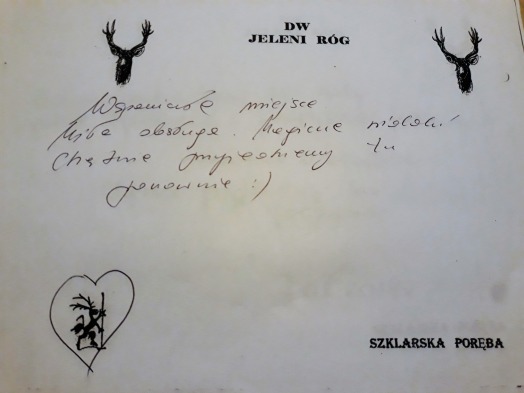 DW
JELENI RÓG
Wspaniałe miejsce
Miła obsługa. Magiczne widoki
Chętnie przyjedziemy tu
ponownie :)
SZKLARSKA PORĘBA